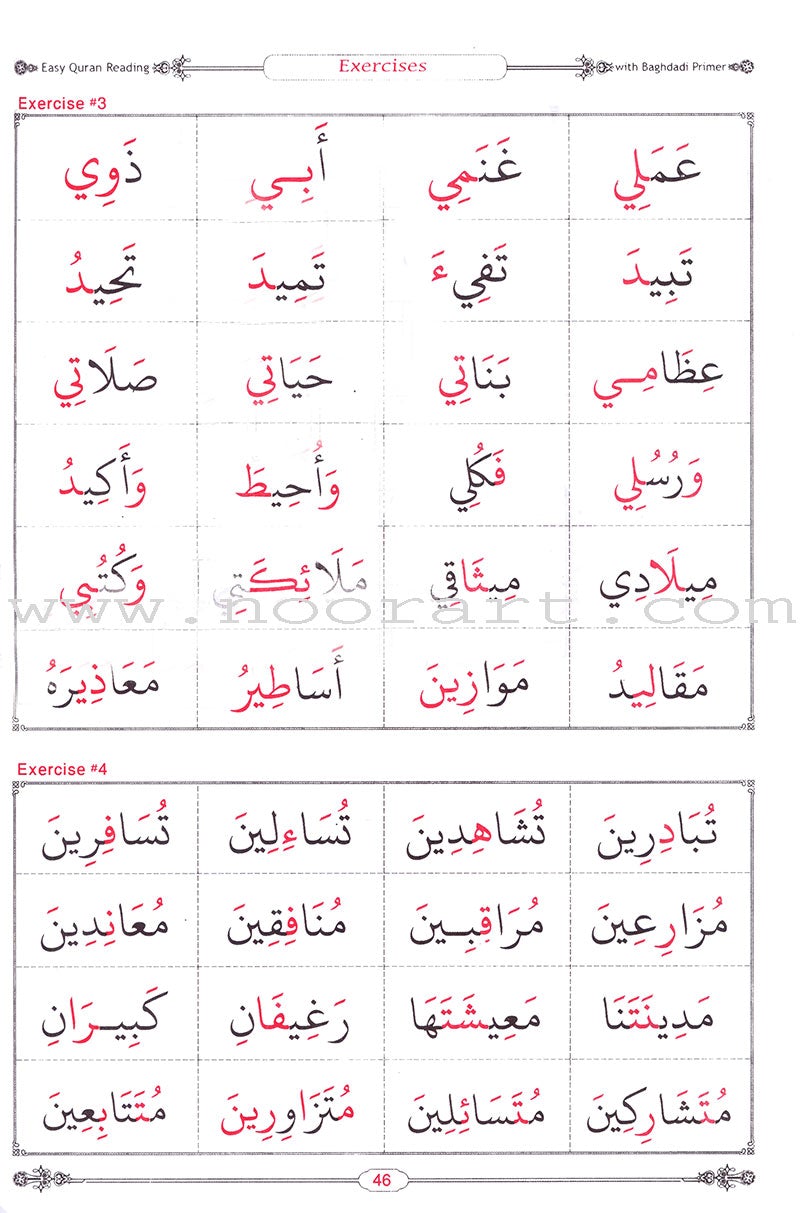 Easy Quran Reading Exercises with Baghdadi Primer
Exercise #3
عَمَلِي غَنَمِي أَبِــي ذَوِي
تَبِيدَ تَفِيءَ تَمِيدَ تَحِيدُ
عِظَامِــي بَنَاتِي حَيَاتِي صَلَاتِي
وَرُسُلِي فَكُلِي وَأُحِيطَ وَأَكِيدُ
مِيلَادِي مِيثَاقِي مَلَائِكَتِي وَكُتُبِي
www.noorart.com
مَقَالِيدُ مَوَازِينَ أَسَاطِيرُ مَعَاذِيرَهُ
Exercise #4
تُبَادِرِينَ تُشَاهِدِينَ تُسَاءِلِينَ تُسَافِرِينَ
مُزَارِعِينَ مُرَاقِبِــينَ مُنَافِقِينَ مُعَانِدِينَ
مَدِينَتَنَا مَعِيشَتَهَا رَغِيفَانِ كَبِيــرَانِ
مُتَشَارِكِينَ مُتَسَائِلِينَ مُتَزَاوِرِينَ مُتَتَابِعِينَ
46